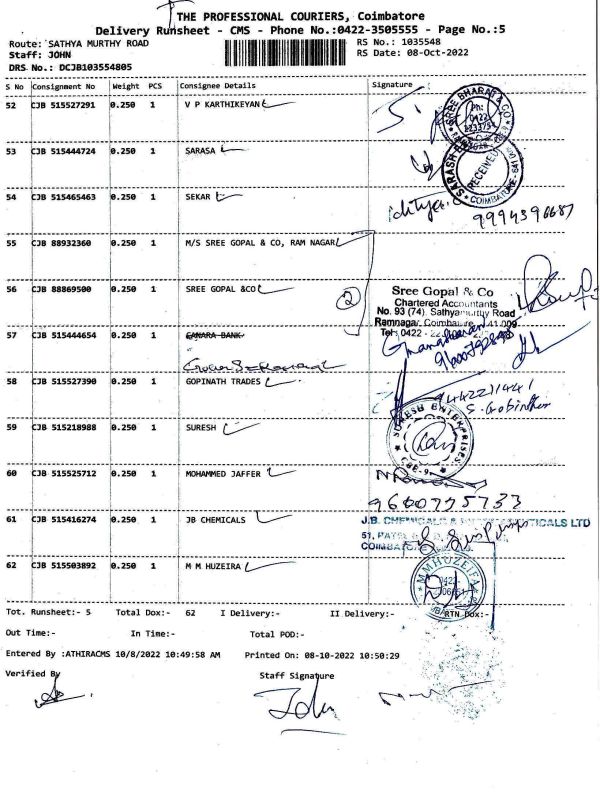 THE PROFESSIONAL COURIERS, Coimbatore
Delivery Runsheet - CMS - Phone No.:0422-3505555 - Page No.:5
Route: SATHYA MURTHY ROAD RS No.: 1035548
Staff: JOHN RS Date: 08-Oct-2022
DRS No.: DCJB103554805
S No Consignment No Weight PCS Consignee Details Signature
52 CJB 515527291 0.250 1 V P KARTHIKEYAN
SREE BHARAT & CO
Ph:
0422
53 CJB 515444724 0.250 1 SARASA
RECEIVED
COIMBATORE
54 CJB 515465463 0.250 1 SEKAR
9994396687
55 CJB 88932360 0.250 1 M/S SREE GOPAL & CO, RAM NAGAR
56 CJB 88869500 0.250 1 SREE GOPAL &CO
2
Sree Gopal & Co
Chartered Accountants
No. 93 (74), Sathyamurthy Road
Ramnagar, Coimbatore
57 CJB 515444654 0.250 1 CANARA BANK
58 CJB 515527390 0.250 1 GOPINATH TRADES
9442211441
59 CJB 515218988 0.250 1 SURESH
SURESH ENTERPRISES
60 CJB 515525712 0.250 1 MOHAMMED JAFFER
9600775733
61 CJB 515416274 0.250 1 JB CHEMICALS
J.B. CHEMICALS &
62 CJB 515503892 0.250 1 M M HUZEIRA
M M HUZEIFA
Tot. Runsheet:- 5 Total Dox:- 62 I Delivery:- II Delivery:- RTN Dox:-
Out Time:- In Time:- Total POD:-
Entered By :ATHIRACMS 10/8/2022 10:49:58 AM Printed On: 08-10-2022 10:50:29
Verified By Staff Signature
John